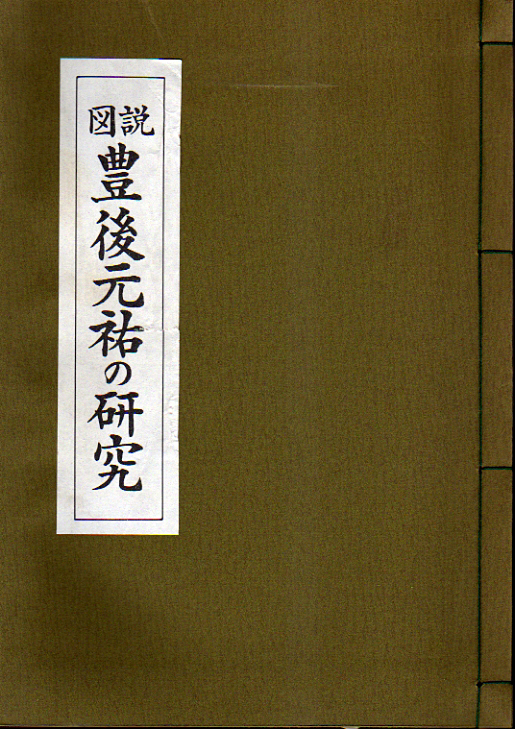 図説
豊後元祐の研究